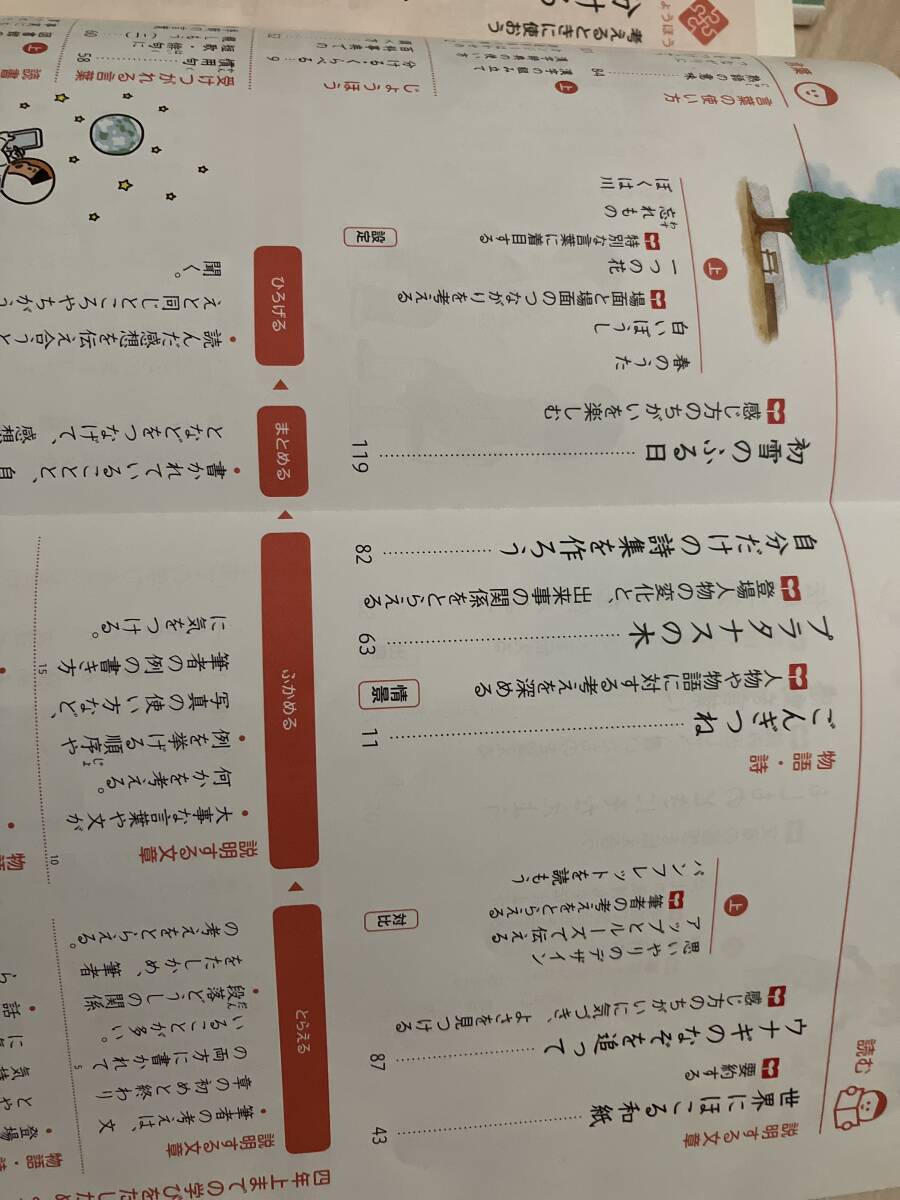 読む
説明する文章
世界にほこる和紙……43
要約する
ウナギのなぞを追って……87
感じ方のちがいに気づき、よさを見つける
上
思いやりのデザイン
アップとルーズで伝える
筆者の考えをとらえる 対比
パンフレットを読もう
物語・詩
ごんぎつね……11
人物や物語に対する考えを深める 情景
プラタナスの木……63
登場人物の変化と、出来事の関係をとらえる
自分だけの詩集を作ろう……82
初雪のふる日……119
感じ方のちがいを楽しむ
上
春のうた
白いぼうし
場面と場面のつながりを考える
一つの花
特別な言葉に着目する 設定
忘れもの
わす
ぼくは川
言葉の使い方
熟語の意味 84
上
漢字の組み立て
じょうほう
分ける・くらべる 9
百科事典での
受けつがれる言葉
慣用句 58
短歌・俳句に
60
読書
上
考えるときに使おう
四年上までの学びを
とらえる
説明する文章
・筆者の考えは、文
章の初めと終わり
の両方に書かれて
いることが多い。
・段落どうしの関係
だん
をたしかめ、筆者
の考えをとらえる。
5
物語・詩
・登場
ふかめる
説明する文章
・大事な言葉や文が
何かを考える。
・例を挙げる順序や
じょ
写真の使い方など、
筆者の例の書き方
に気をつける。
10
15
物語
まとめる
・書かれていることと、自
となどをつなげて、感想
ひろげる
・読んだ感想を伝え合うと
えと同じところやちがう
聞く。